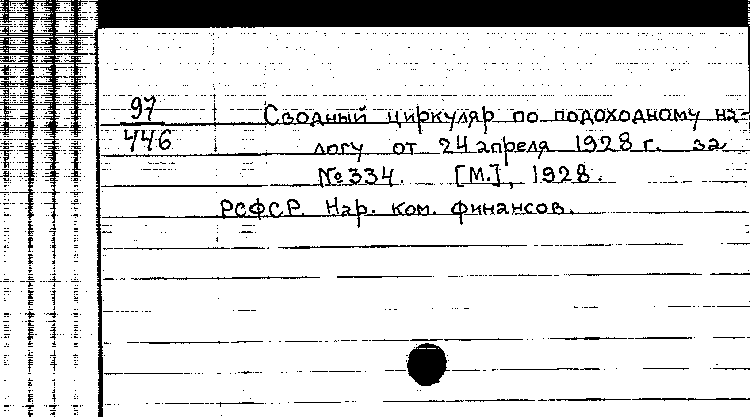 97
446
Сводный циркуляр по подоходному на-
логу от 24 апреля 1928 г. за
№334. [М.], 1928.
РСФСР. Нар. ком. финансов.